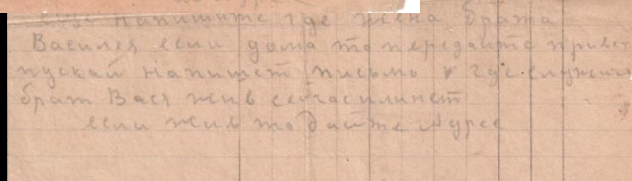 еще напишите где жена брата
Василея если дома то передайте привет
пускай напишет письмо и где служит
брат Вася жив сейчас или нет
если жив то дайте Адрес